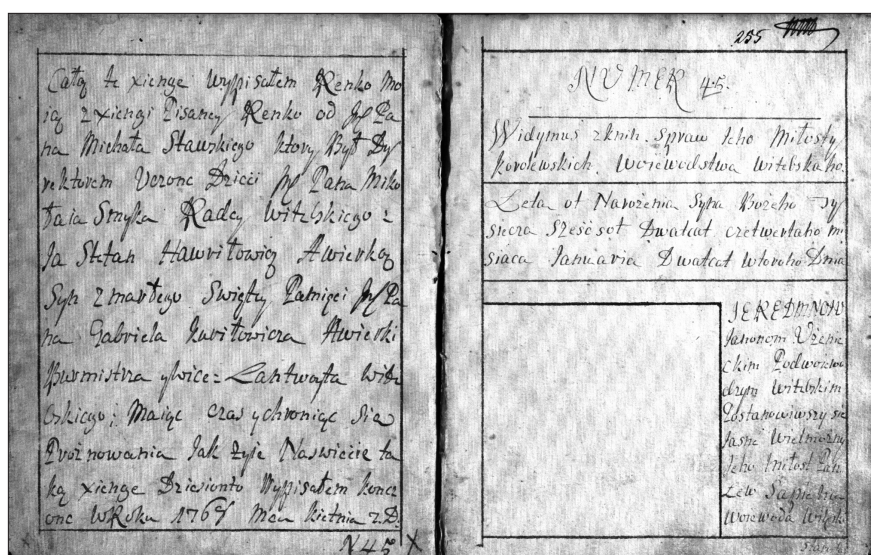 Całą tę xienge Wypisałem Renko Mo
ią z xiengi Pisaney Renko od JP Pa
na Michała Stawskiego ktory Był Dy
rektorem Uczonc Dzieci JP Pana Miko
łaia Smyka Radcy Witebskiego z
Ja Stefan Hawriłowicz Awierką
Syn zmarłego Swięty Pamięci JP Pa
na Gabriela Hawiłowicza Awierki
Burmistra y wice= Lantwojta Witeb
bskiego; Maiąc czas y chroniąc się
Proznowania Jak żyie Naswiecie ta
ką xienge Dziesionto Wypisałem koncz
onc WRoku 1768 Mca kietnia 2. D.
N 45 X
255
NUMER 45.
Widymus zknih. Spraw Jeho Miłosty
korolewskich. Woiewodstwa Witebskaho.
Leta ot Narożenia Syna Bożeho Ty
siecza Szesc sot Dwatcat czetwertaho m.
siaca Januaria Dwatcat wtoroho Dnia
JEREDMNOIU
Janonom
ckim Podwoiew
dzym Witebskim
Postanowiwszy sie
Jasne Wielmożny
Jeho miłost Pan
Lew Sapieha
Woiewoda Witebs